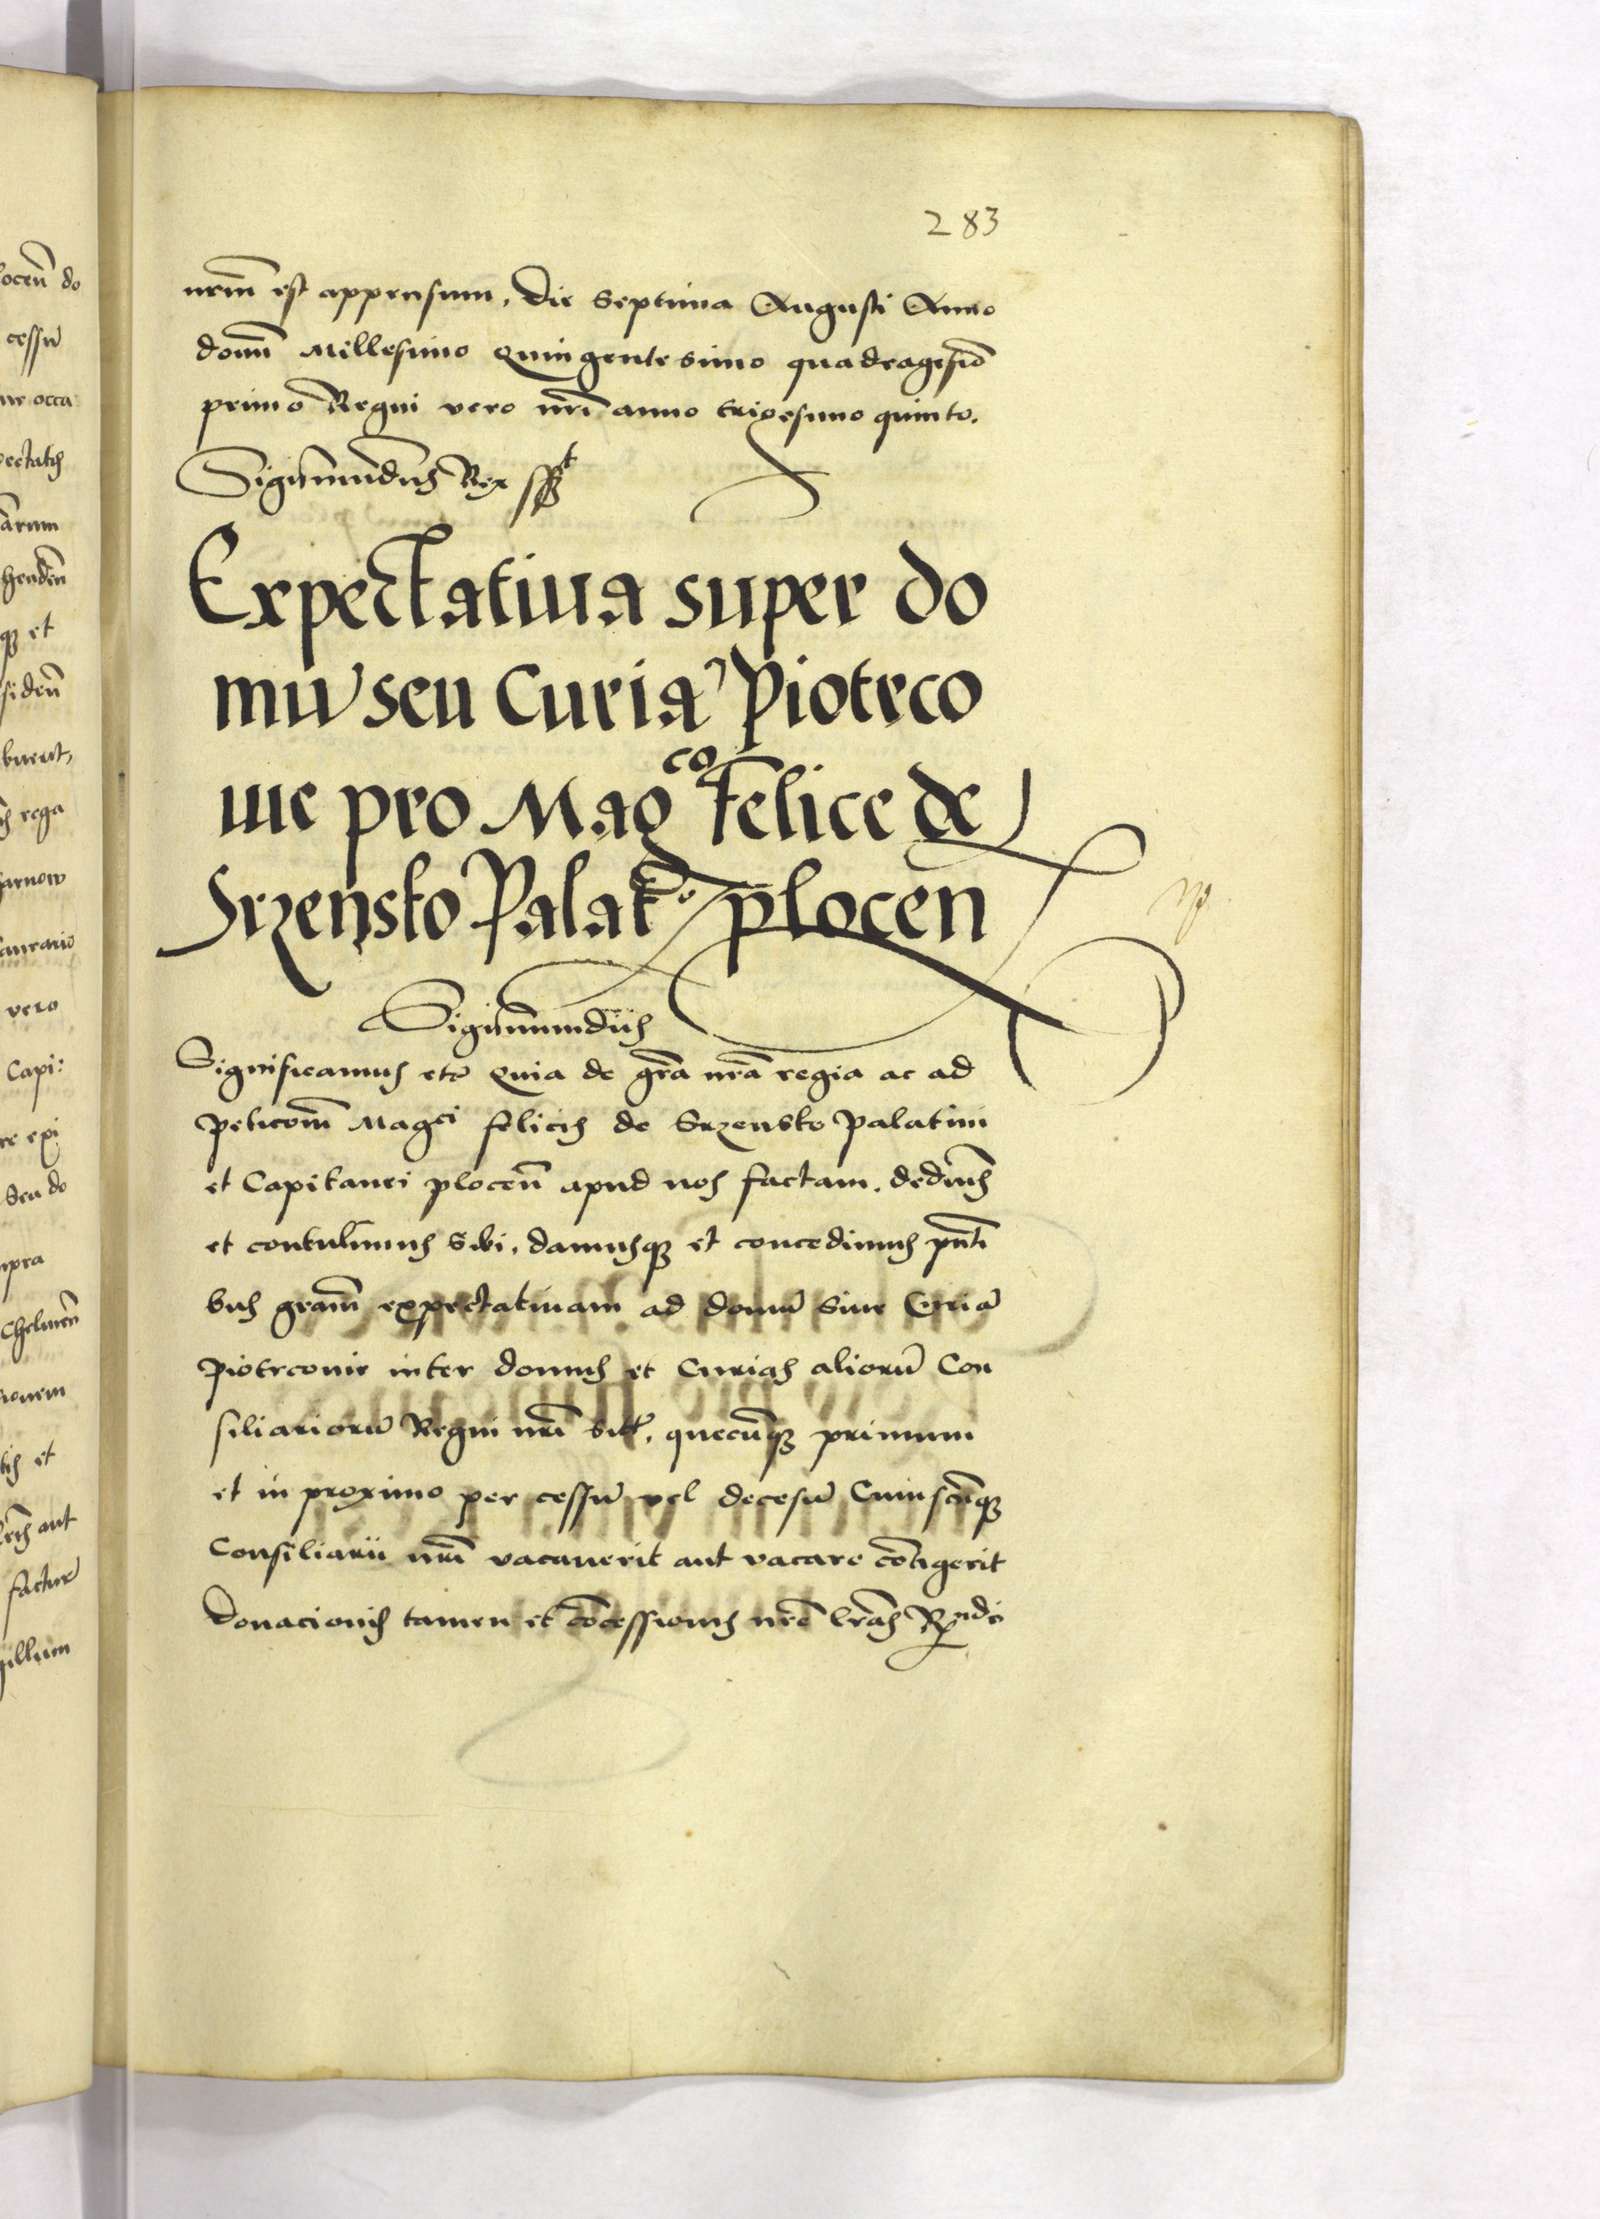 283
nrm̄ est appensum. Die Septima Augusti Anno
domī Millesimo Quingentesimo quadragesīo
primo Regni vero nrī anno trigesimo quinto.
Sigismundus Rex sst
Expectatiua super do
mū seu Curiā Piotrco
uie pro Magco Felice de
Srzensko Palat. plocen
Sigismundus
Significamus etc Quia de grā nrā regia ac ad
peticom̄ Magci felicis de Srzensko Palatini
et Capitanei plocen̄ apud nos factam. dedimus
et contulimus sibi. damusque et concedimus pn̄ti
bus gram̄ expectatiuam ad domū siue Curiā
Piotrcouie inter domus et Curias aliorū Con
siliariorū Regni nrī sitt. quecūque primum
et in proximo per cessū vel decesū Cuiuscūque
Consiliarii nrī vacauerit aut vacare cōtigerit
donacionis tamen et cōcessionis nrē lrās